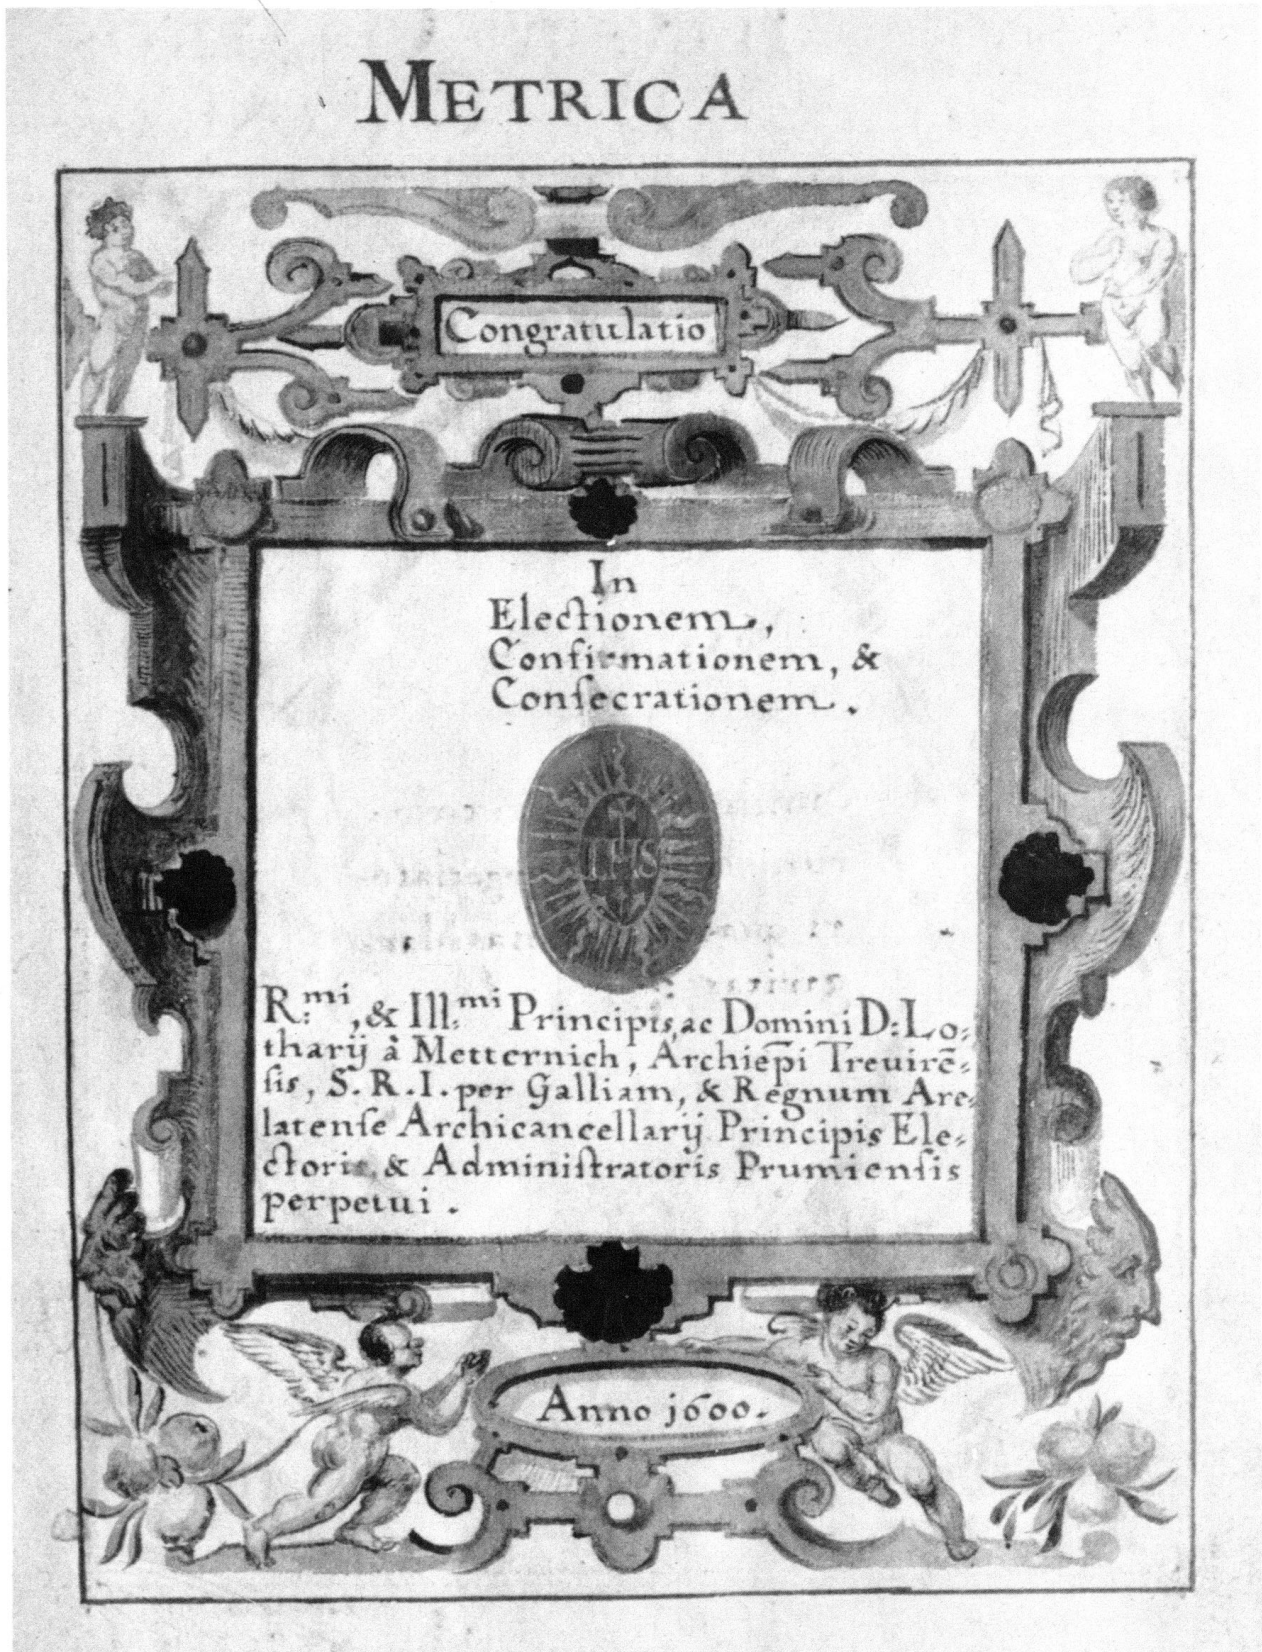 METRICA
Congratulatio
In
Electionem,
Confirmationem, &
Conſecrationem.
IHS
R:mi, & Ill:mi Principis, ac Domini D: Lo-
tharij à Metternich, Archiep̄i Treuirē-
ſis, S. R. I. per Galliam, & Regnum Are-
latenſe Archicancellarij Principis Ele-
ctoris, & Adminiſtratoris Prumienſis
perpetui.
Anno 1600.